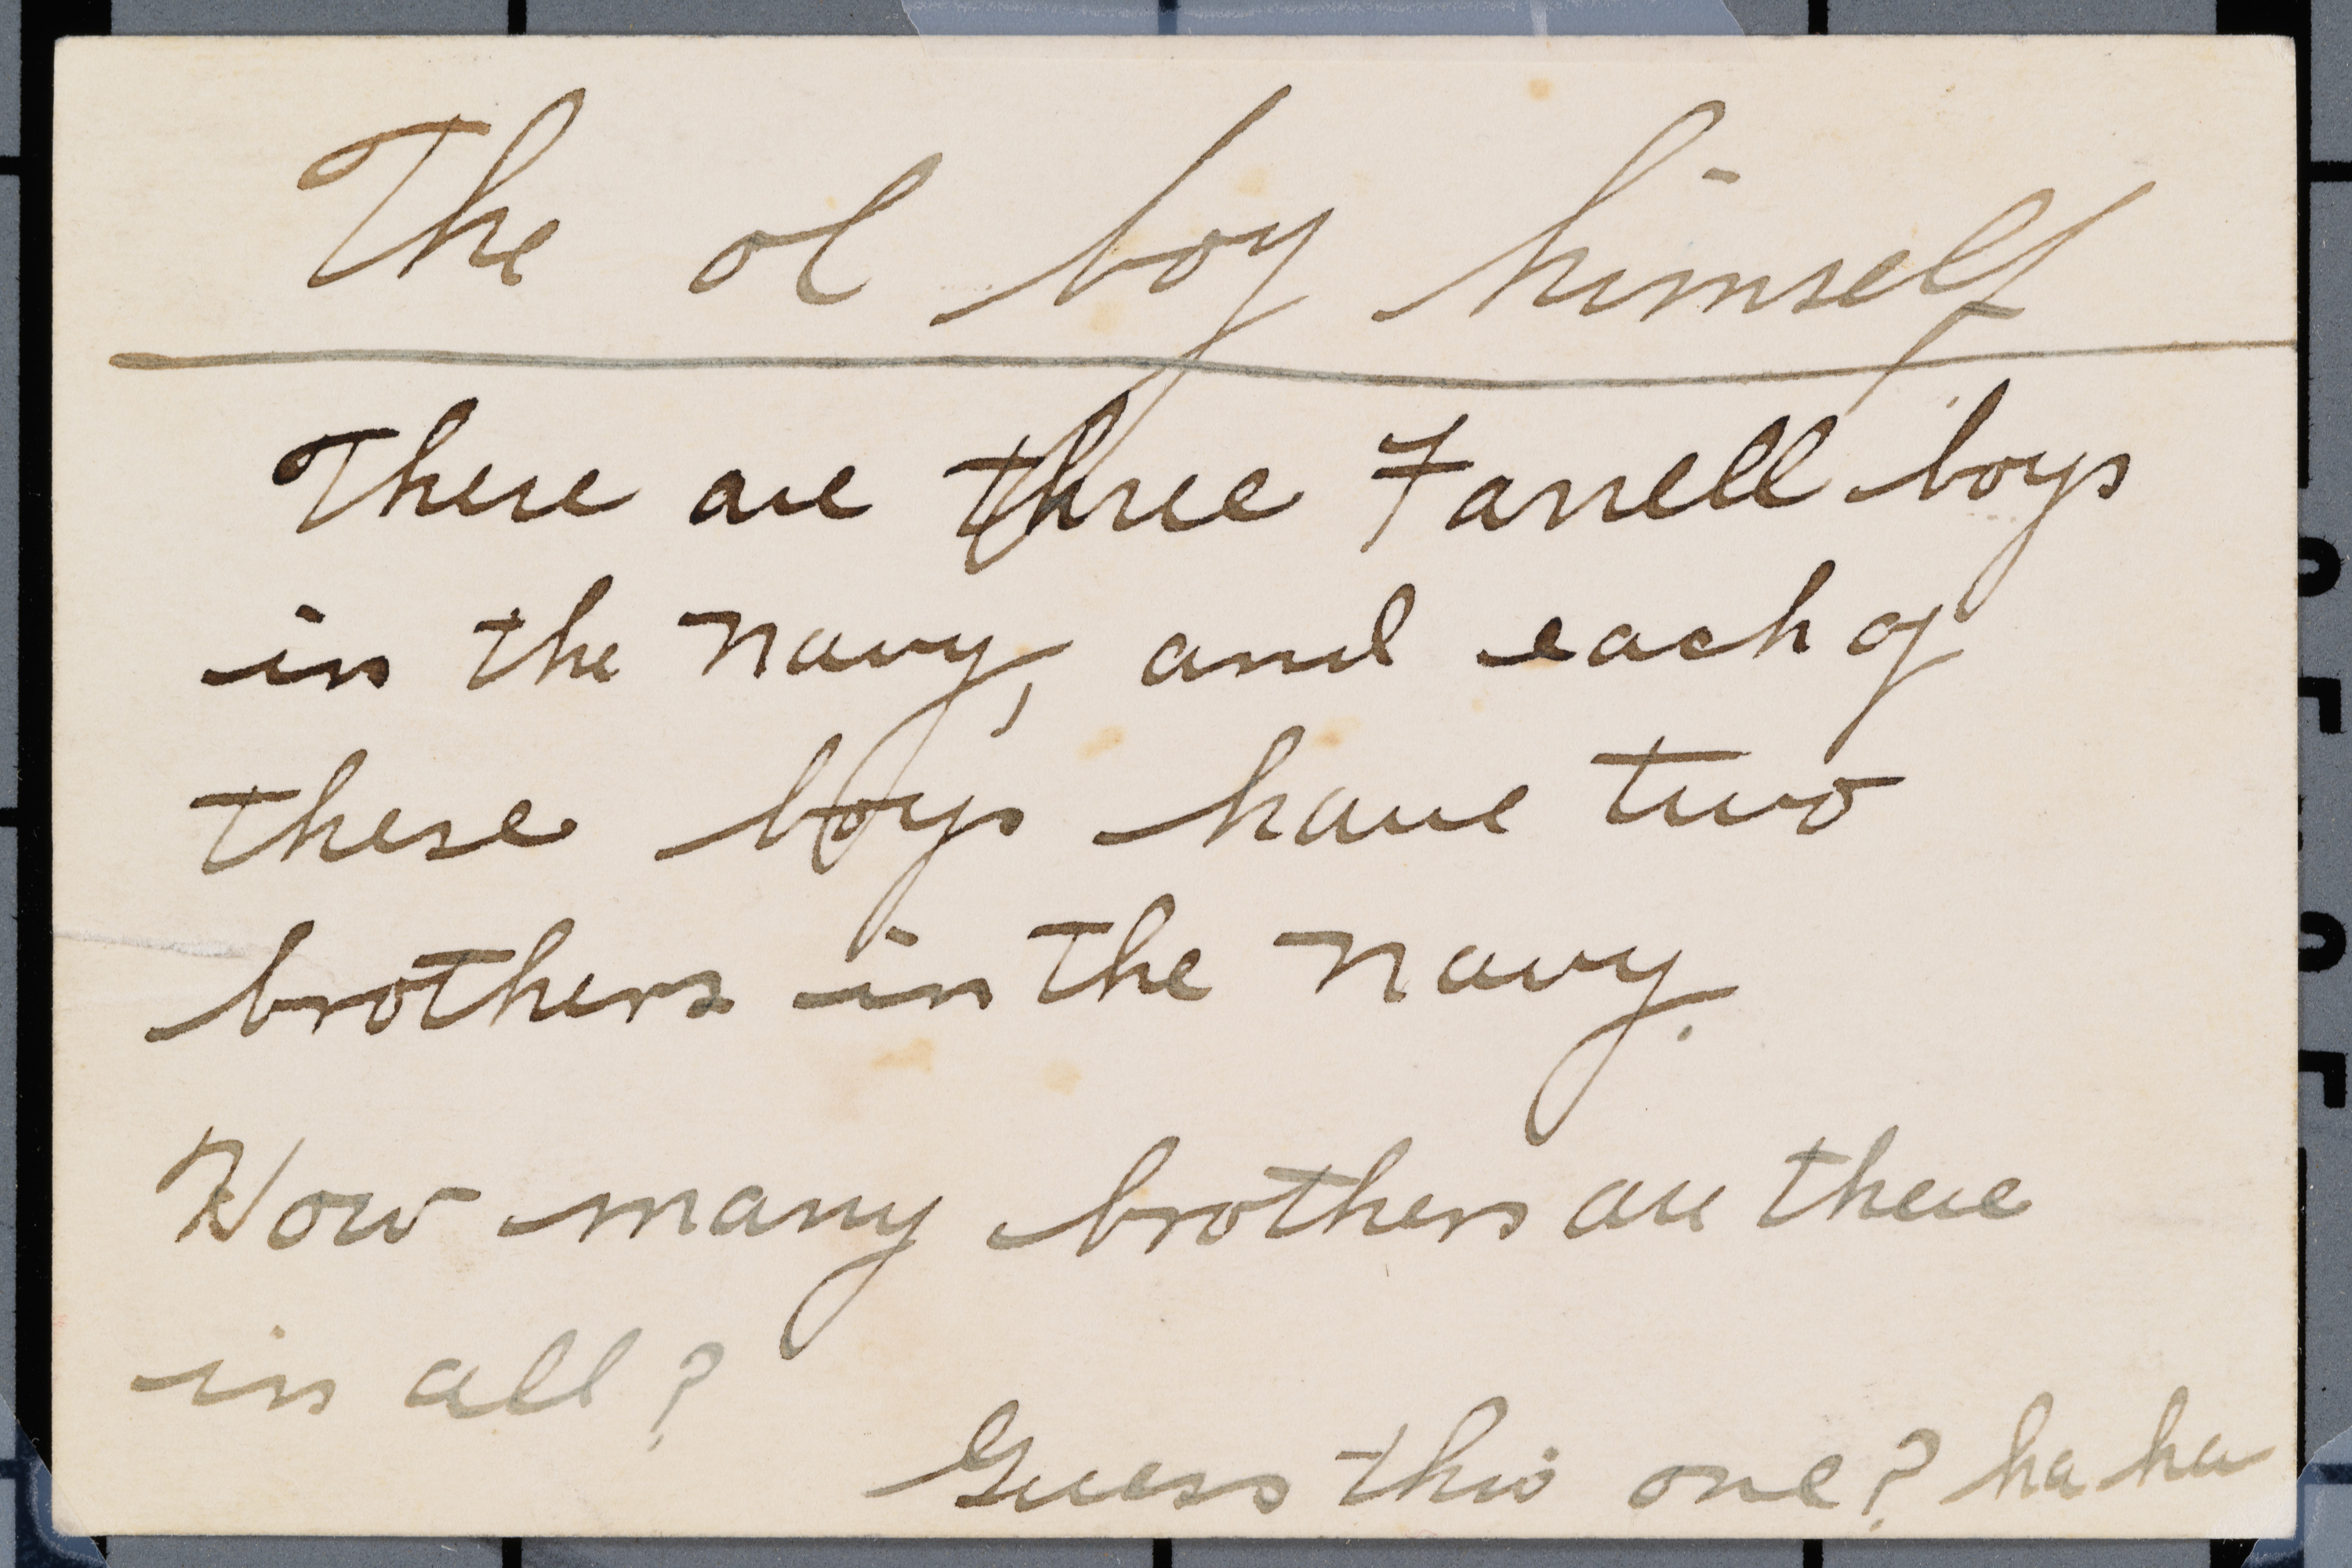 The ol boy himself
There are three Farrell boys
in the Navy, and each of
these boys have two
brothers in the Navy.
How many brothers are there
in all?
Guess this one? ha ha